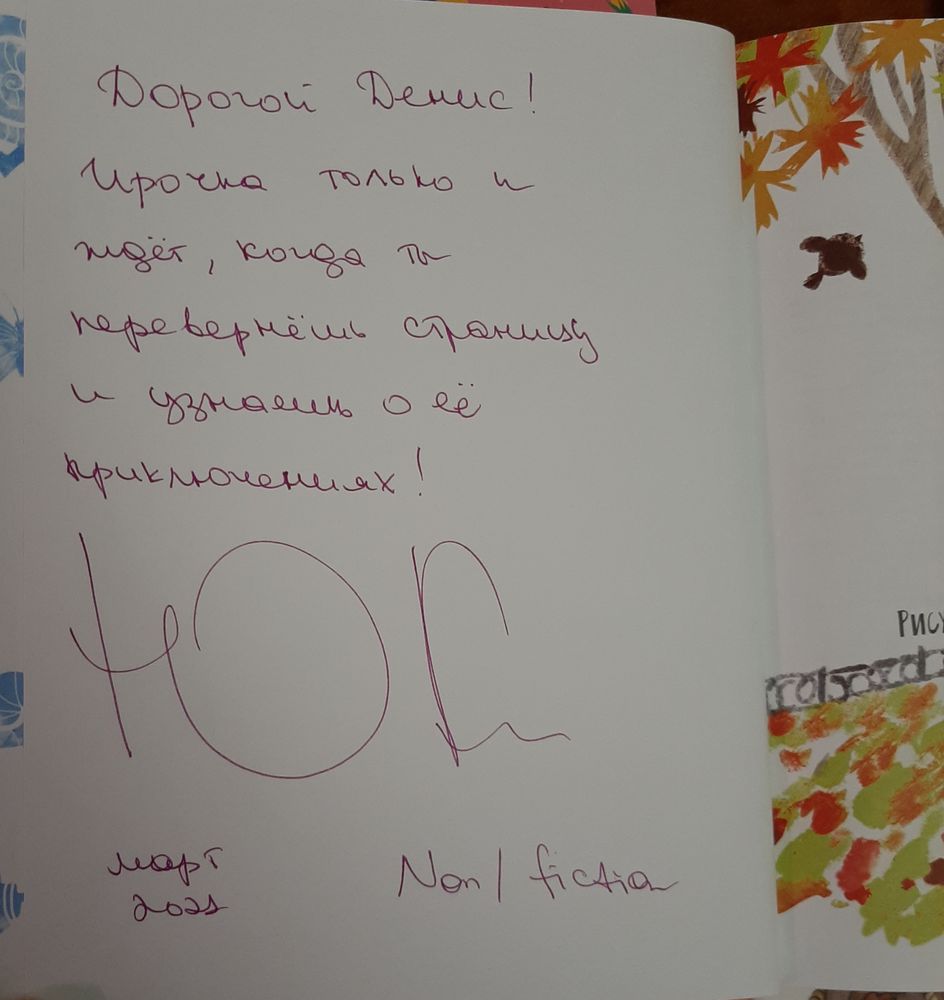 Дорогой Денис!
Ирочка только и
ждёт, когда ты
перевернёшь страницу
и узнаешь о её
приключениях!
март
2021
Non/fiction
РИСУ